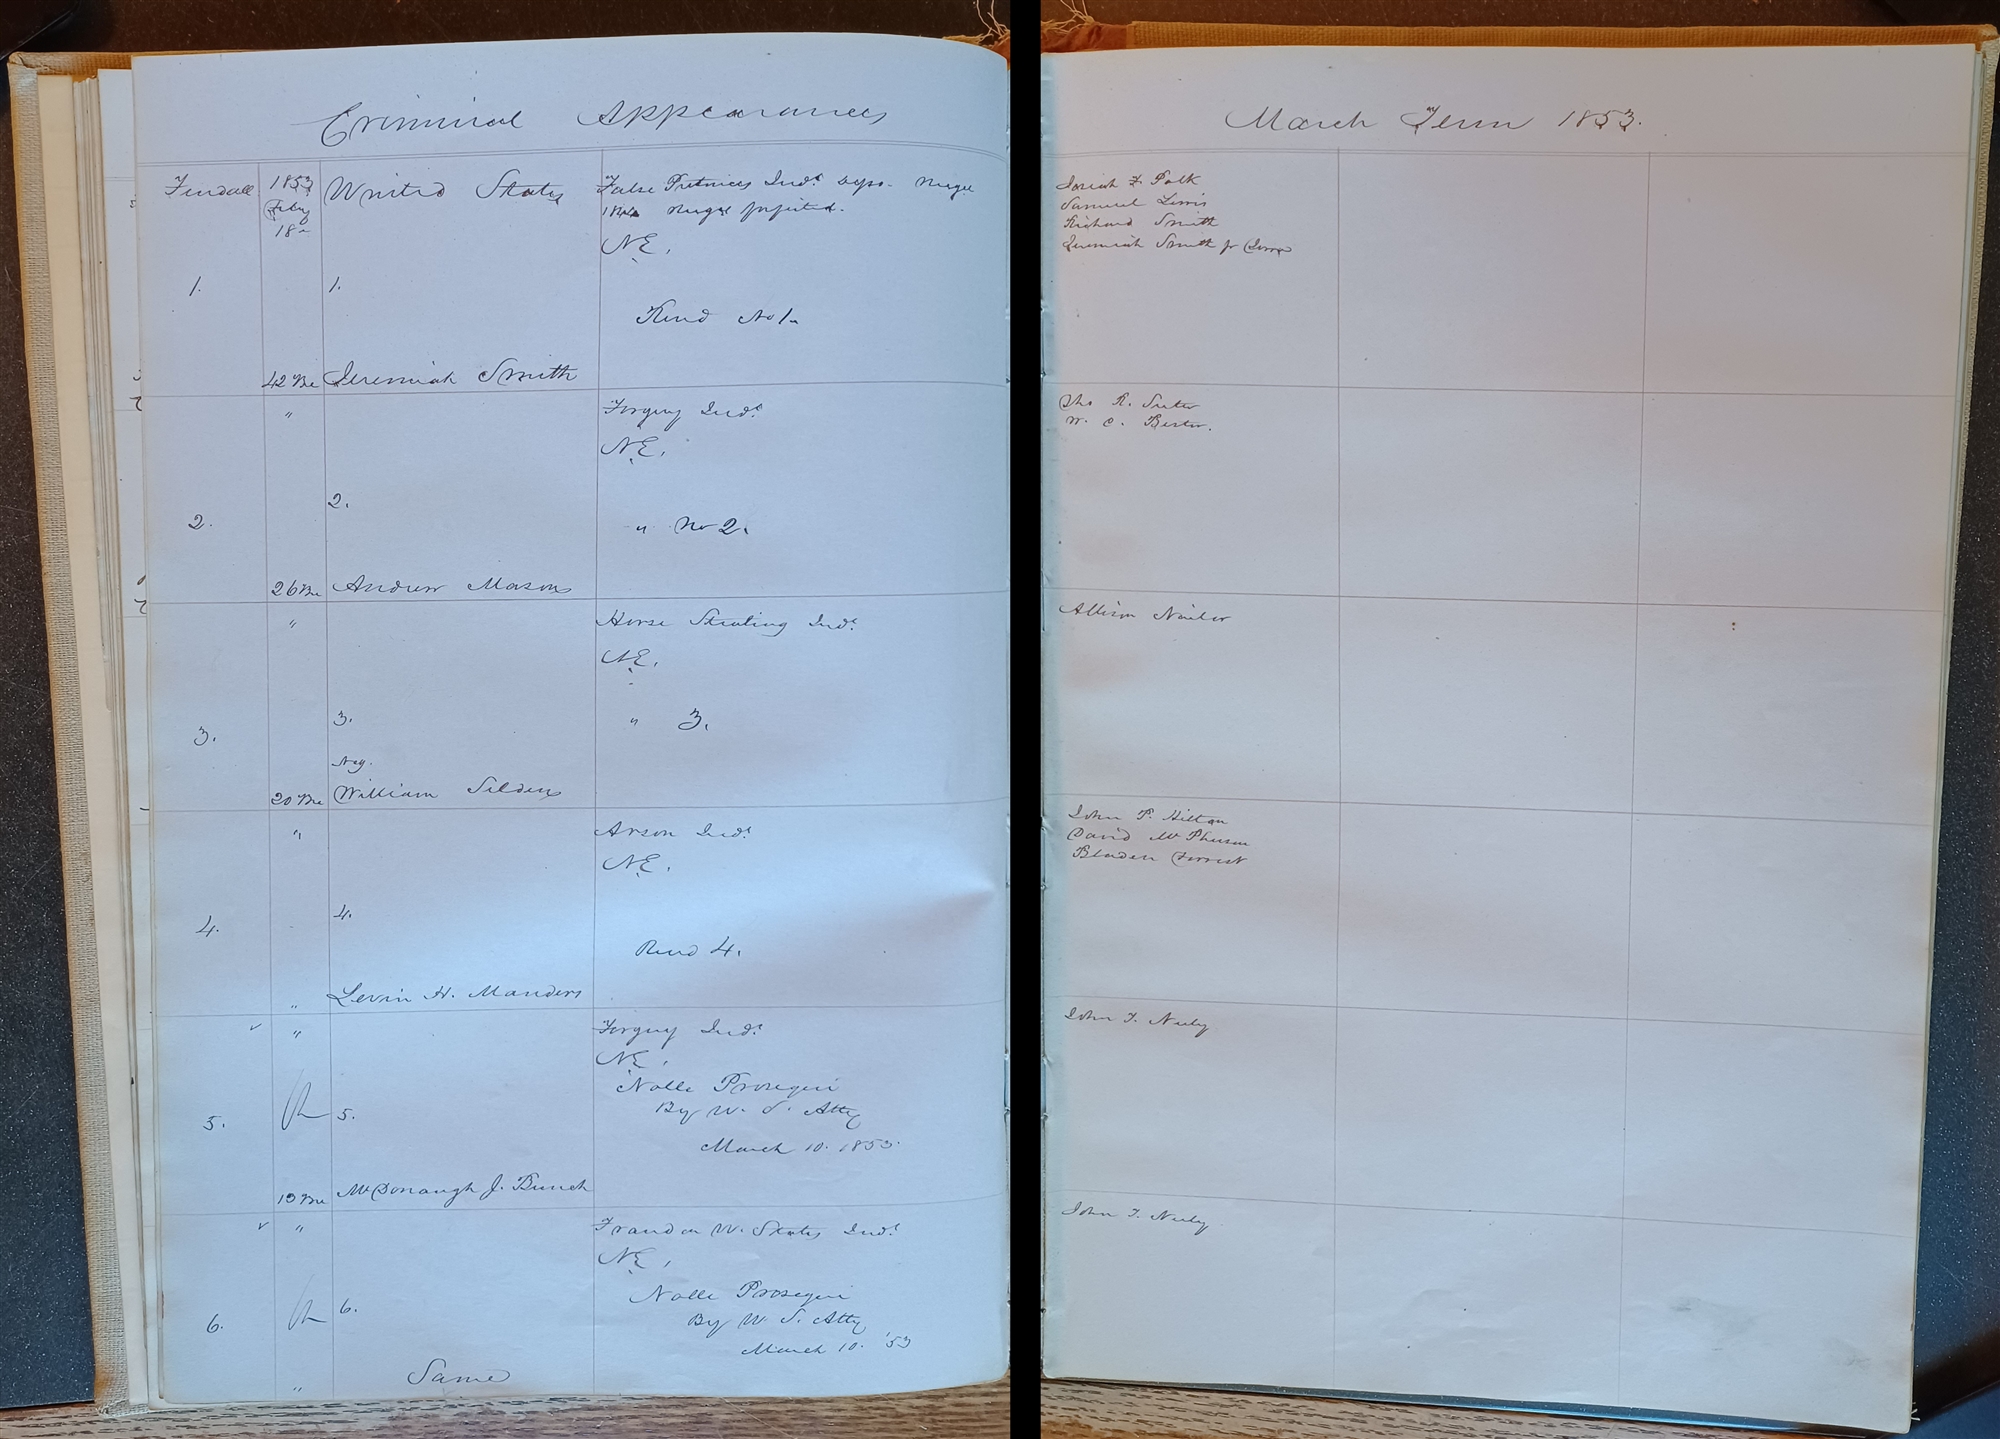 Criminal Appearances
Fendall
1853
Feby
18
United States
False Pretences Indt
N.E.
1.
1.
Rend No 1.
42 Be
Jeremiah Smith
"
Forgery Indt
N.E.
2.
2.
" No 2.
26 Be
Andrew Mason
"
Horse Stealing Indt
N.E.
3.
3.
" 3.
Neg.
20 Be
William Selden
"
Arson Indt
N.E.
4.
4.
Rend 4.
"
Levin H. Manders
"
Forgery Indt
N.E.
Nolle Prosequi
By U. S. Atty
5.
5.
March 10. 1853.
19 Be
McDonaugh J. Bunch
"
Fraud on U. States Indt
N.E.
Nolle Prosequi
6.
6.
By U. S. Atty
March 10. '53
"
Same
March Term 1853.
Josiah F. Polk
Samuel Lewis
Richard Smith
Jeremiah Smith jr
Tho R. Suter
W. C. Bestor.
Allison Nailor
John P. Hilton
David McPherson
Bladen Forrest
John F. Neely
John F. Neely